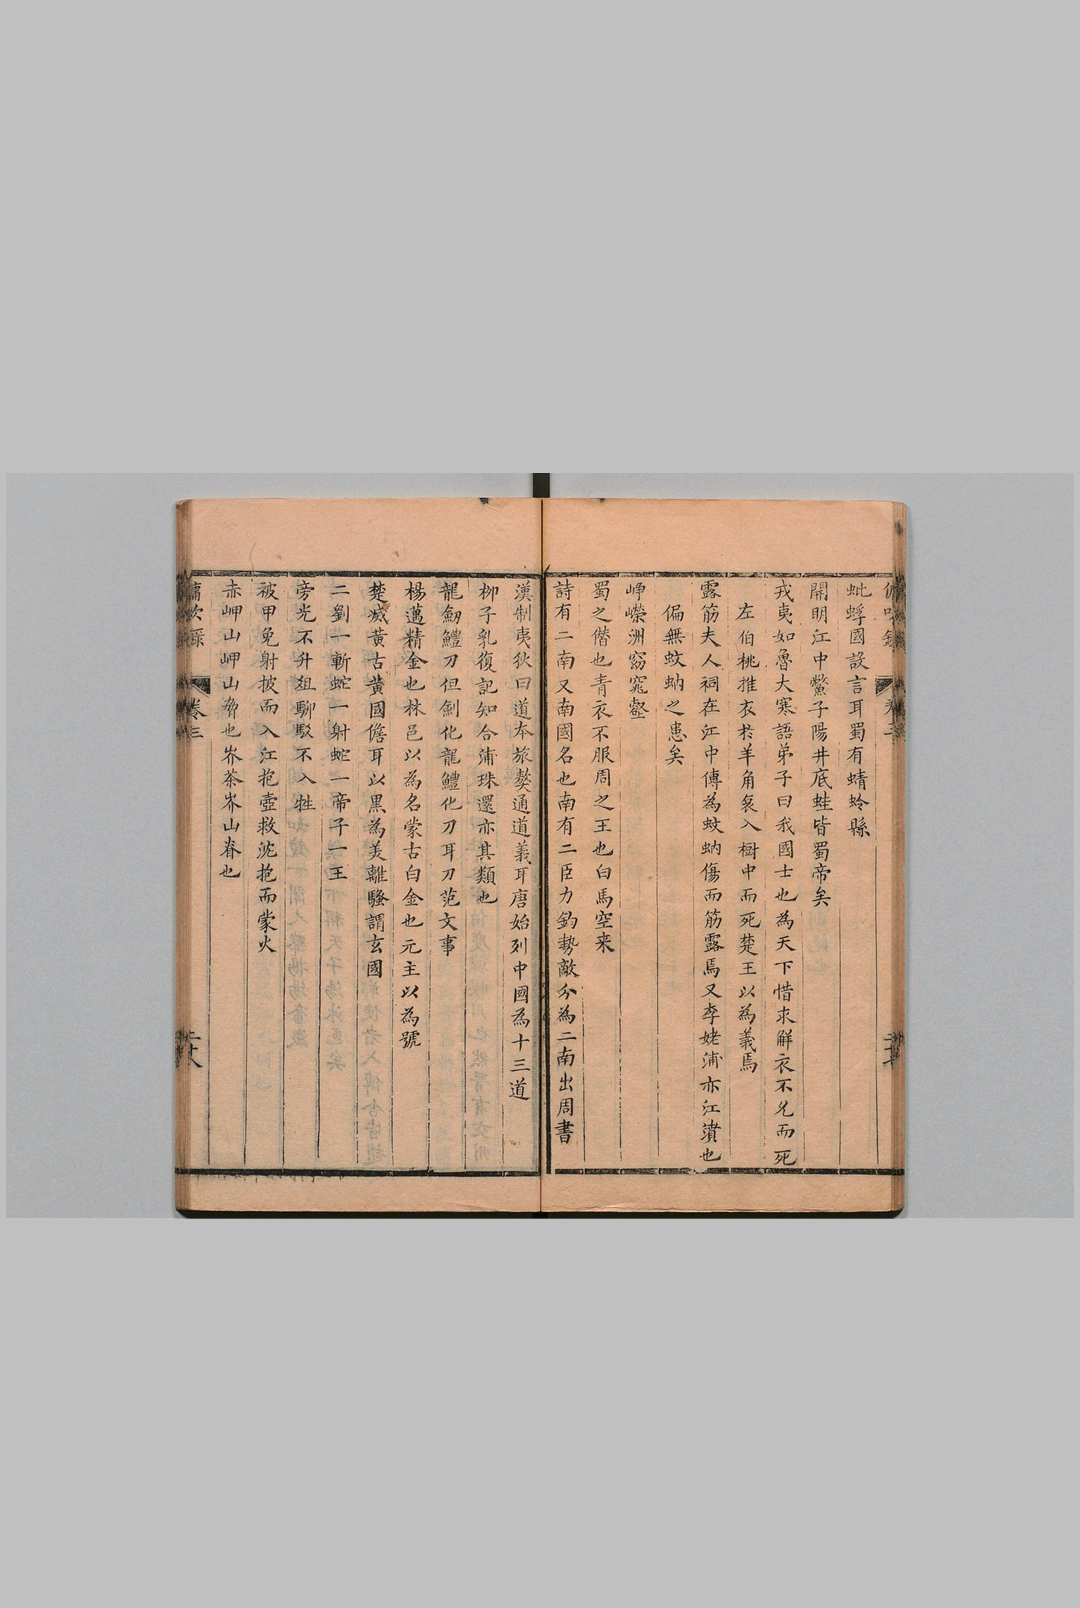 蚍蜉國設言耳蜀有蜻蛉縣
開明江中鱉子陽井底蛙皆蜀帝矣
戎夷如魯大寒語弟子曰我國士也為天下惜求解衣不允而死
左伯桃推衣於羊角哀入樹中而死楚王以為義焉
露筋夫人祠在江中傳為蚊蚋傷而筋露焉又李姥浦亦江濆也
偏無蚊蚋之患矣
崢嶸洲窈窕壑
蜀之僭也青衣不服周之王也白馬空来
詩有二南又南國名也南有二臣力鈞勢敵分為二南出周書
漢制夷狄曰道本旅獒通道義耳唐始列中國為十三道
柳子乳復記知合浦珠還亦其類也
龍劒鱧刀但劒化龍鱧化刀耳刀范文事
楊邁精金也林邑以為名蒙古白金也元主以為號
楚滅黃古黃國儋耳以黑為美離騷謂玄國
二劉一斬蛇一射蛇一帝子一王
旁光不升俎駠駁不入牲
被甲免射披而入江抱壺救沈抱而蒙火
赤岬山岬山脅也岕茶岕山脊也
卷三
二十八